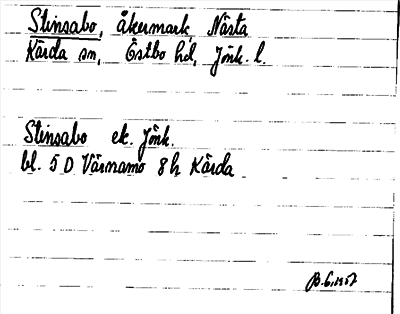 Stensabo, åkermark, Nästa
Kärda sn, Östbo hd, Jönk. l.
Stensabo ek. Jönk.
bl. 5 D Värnamo 8 h Kärda